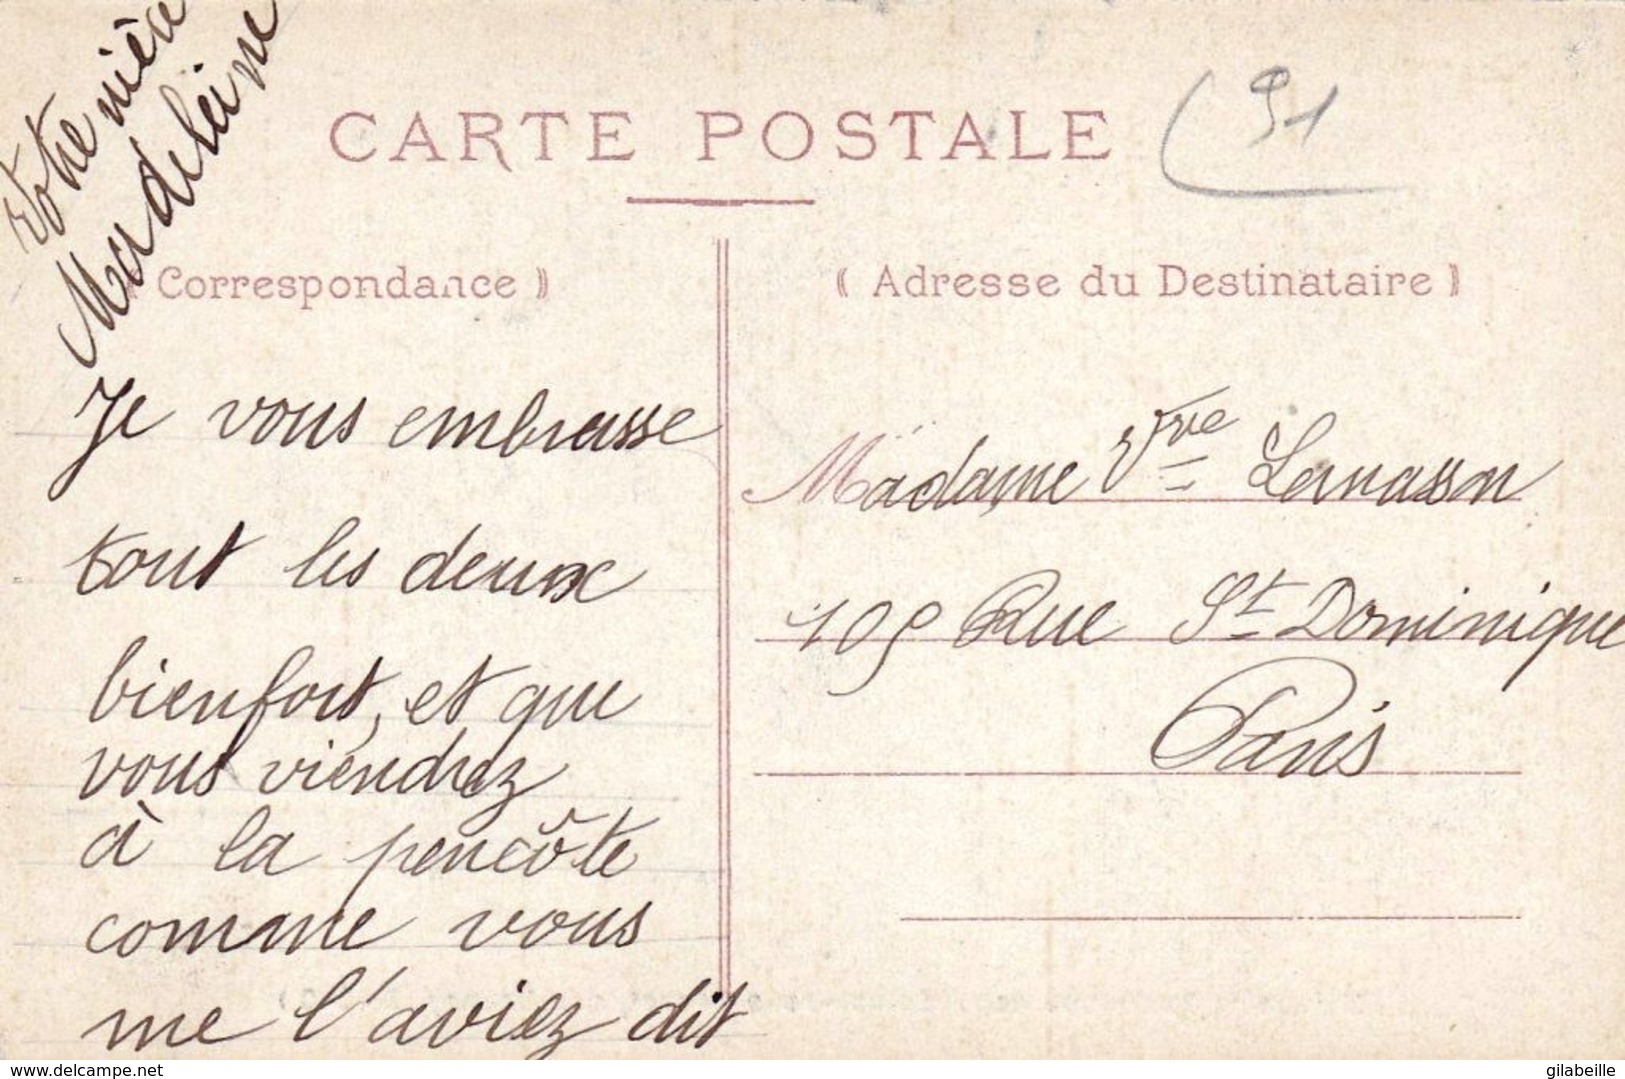 Votre nièce
Madeleine
CARTE POSTALE
91
Correspondance ⸩
⸨ Adresse du Destinataire ⸩
Je vous embrasse
tout les deux
bienfort, et que
vous viendrez
à la pencôte
comme vous
me l'aviez dit
Madame Vve
109 Rue St Dominique
Paris
delcampe.net
gilabeille